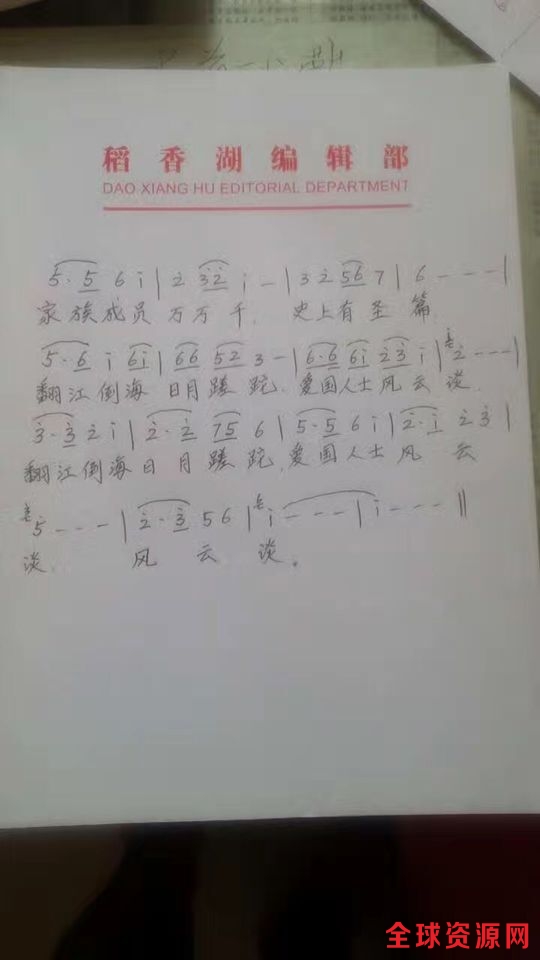 稻香湖编辑部
DAO XIANG HU EDITORIAL DEPARTMENT
5· 5 6 i | 2̇ 3̇2̇ i – | 3 2 56 7 | 6 - - - |
家族成员万万千, 史上有圣篇
5·6 i 6i | 66 52 3 – | 6·6 6i 2̇3̇ i | 2̇ - - - |
翻江倒海 日月蹉跎, 爱国人士风云谈
3̇·3̇ 2̇ i | 2̇·2̇ 75 6 | 5·5 6 i | 2̇·i 2̇ 3̇ |
翻江倒海日月蹉跎, 爱国人士风云
5 - - - | 2̇·3̇ 5 6 | i - - - | i - - - ‖
谈. 风云谈。
全球资源网